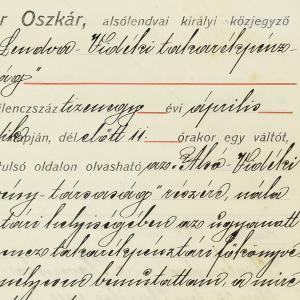 r Oszkár, alsólendvai királyi közjegyző
Lendva-Vidéki takarékpénz-
ság"
ilenczszáz tizenegy évi április
dik napján, dél előtt 11 órakor egy váltót,
tulsó oldalon olvasható az „Alsó-Vidéki
ény-társaság" részére, nála
tári helyiségében az ugyanott
nevezett takarékpénztári főkönyve
emélyesen bemutattam, a mire